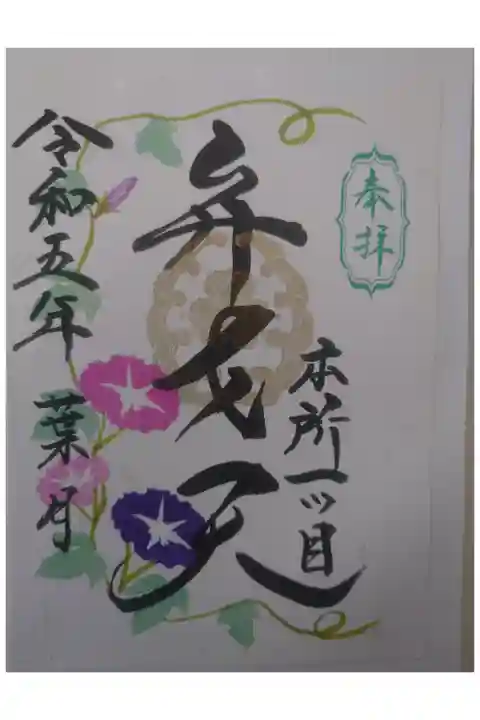 奉拝
本所一ッ目
弁才天
令和五年 葉月